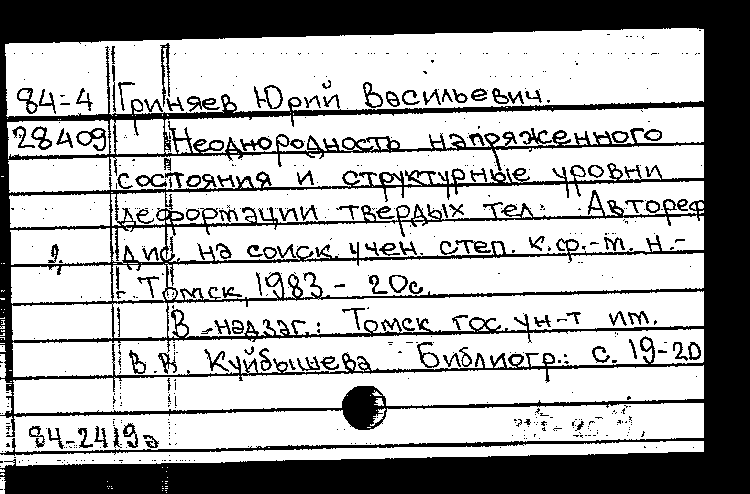 84-4 Гриняев Юрий Васильевич.
28409 Неоднородность напряженного
состояния и структурные уровни
деформации твердых тел: Автореф
дис. на соиск. учен. степ. к.ф.-м. н.-
- Томск, 1983.- 20с.
В надзаг.: Томск гос. ун-т им.
В.В. Куйбышева. Библиогр.: с. 19-20
84-2419а